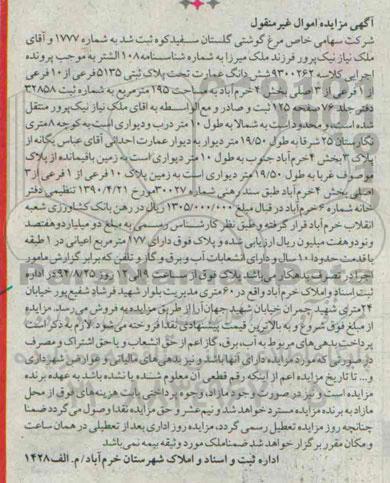 آگهی مزایده اموال غیرمنقول
شرکت سهامی خاص مرغ گوشتی گلستان سفیدکوه ثبت شد به شماره ۱۷۷۷ و آقای
ملک نیاز نیک پرور فرزند ملک میرزا به شماره شناسنامه ۱۰۸ الشتر به موجب پرونده
اجرایی کلاسه ۹۳۰۰۲۶۲ شش دانگ عمارت تحت پلاک ثبتی ۵۱۳۵ فرعی از ۱۰ فرعی
از ۱ فرعی از ۳ اصلی بخش ۴ خرم آباد به مساحت ۱۹۵ مترمربع به شماره ثبت ۳۲۸۵۸
دفتر جلد ۷۶ صفحه ۱۲۵ ثبت و صادر و مع الواسطه به اقای ملک نیاز نیک پرور منتقل
شده است و محدود است به شمالا به طول ۱۰ متر درب و دیواری است به کوچه ۸ متری
نگارستان ۲۵ شرقا به طول ۱۹/۵۰ متر دیوار به دیوار عمارت احداثی آقای عباس یگانه از
پلاک ۳ بخش ۴ خرم آباد جنوب به طول ۱۰ متر دیواری است به زمین باقیمانده از پلاک
موصوف غربا به طول ۱۹/۵۰ متر دیواری است به زمین پلاک ۱۰ فرعی از ۱ فرعی از ۳
اصلی بخش ۴ خرم آباد طبق سند رهنی شماره ۳۰۰۲۷ مورخ ۱۳۹۰/۴/۲۱ تنظیمی دفتر
خانه شماره ۶ خرم آباد در قبال مبلغ ۱۳۰۵/۰۰۰/۰۰۰ ریال در رهن بانک کشاورزی شعبه
انقلاب خرم آباد قرار گرفته و طبق نظر کارشناس رسمی به مبلغ دو میلیارد و هفتصد
و نود و هفت میلیون ریال ارزیابی شده و پلاک فوق دارای ۱۷۷ متر مربع اعیانی در ۱ طبقه
با قدمت حدودا ۱۰ سال و دارای انشعابات آب و برق و گاز و تلفن که برابر گزارش مامور
اجرا در تصرف بدهکار می باشد پلاک فوق از ساعت ۹ الی ۱۲ روز ۹۴/۸/۲۵ در اداره
ثبت اسناد و املاک خرم آباد واقع در ۶۰ متری مدیریت بلوار شهید فرشاد شفیع پور خیابان
۲۴ متری شهید چمران خیابان شهید جهان آرا از طریق مزایده به فروش می رسد. مزایده
از مبلغ فوق شروع و به بالاترین قیمت پیشنهادی نقدا فروخته می شود. لازم به ذکر است
پرداخت بدهی های مربوط به آب، برق، گاز اعم از حق انشعاب و یا حق اشتراک و مصرف
در صورتی که مورد مزایده دارای آنها باشد و نیز بدهی های مالیاتی و عوارض شهرداری
و... تا تاریخ مزایده اعم از اینکه رقم قطعی آن معلوم شده یا نشده باشد به عهده برنده
مزایده است و نیز در صورت وجود مازاد، وجوه پرداختی بابت هزینه های فوق از محل
مازاد به برنده مزایده مسترد خواهد شد و نیم عشر و حق مزایده نقدا وصول می گردد ضمنا
چنانچه روز مزایده تعطیل رسمی گردد، مزایده روز اداری بعد از تعطیلی در همان ساعت
و مکان مقرر برگزار خواهد شد ضمنا ملک مورد وثیقه بیمه نمی باشد
اداره ثبت و اسناد و املاک شهرستان خرم آباد/ م. الف ۱۴۲۸